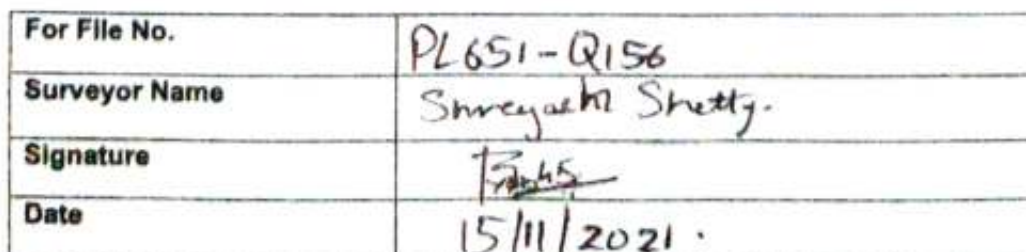 For File No. PL651-Q156
Surveyor Name Shreyash Shetty.
Signature
Date 15/11/2021.